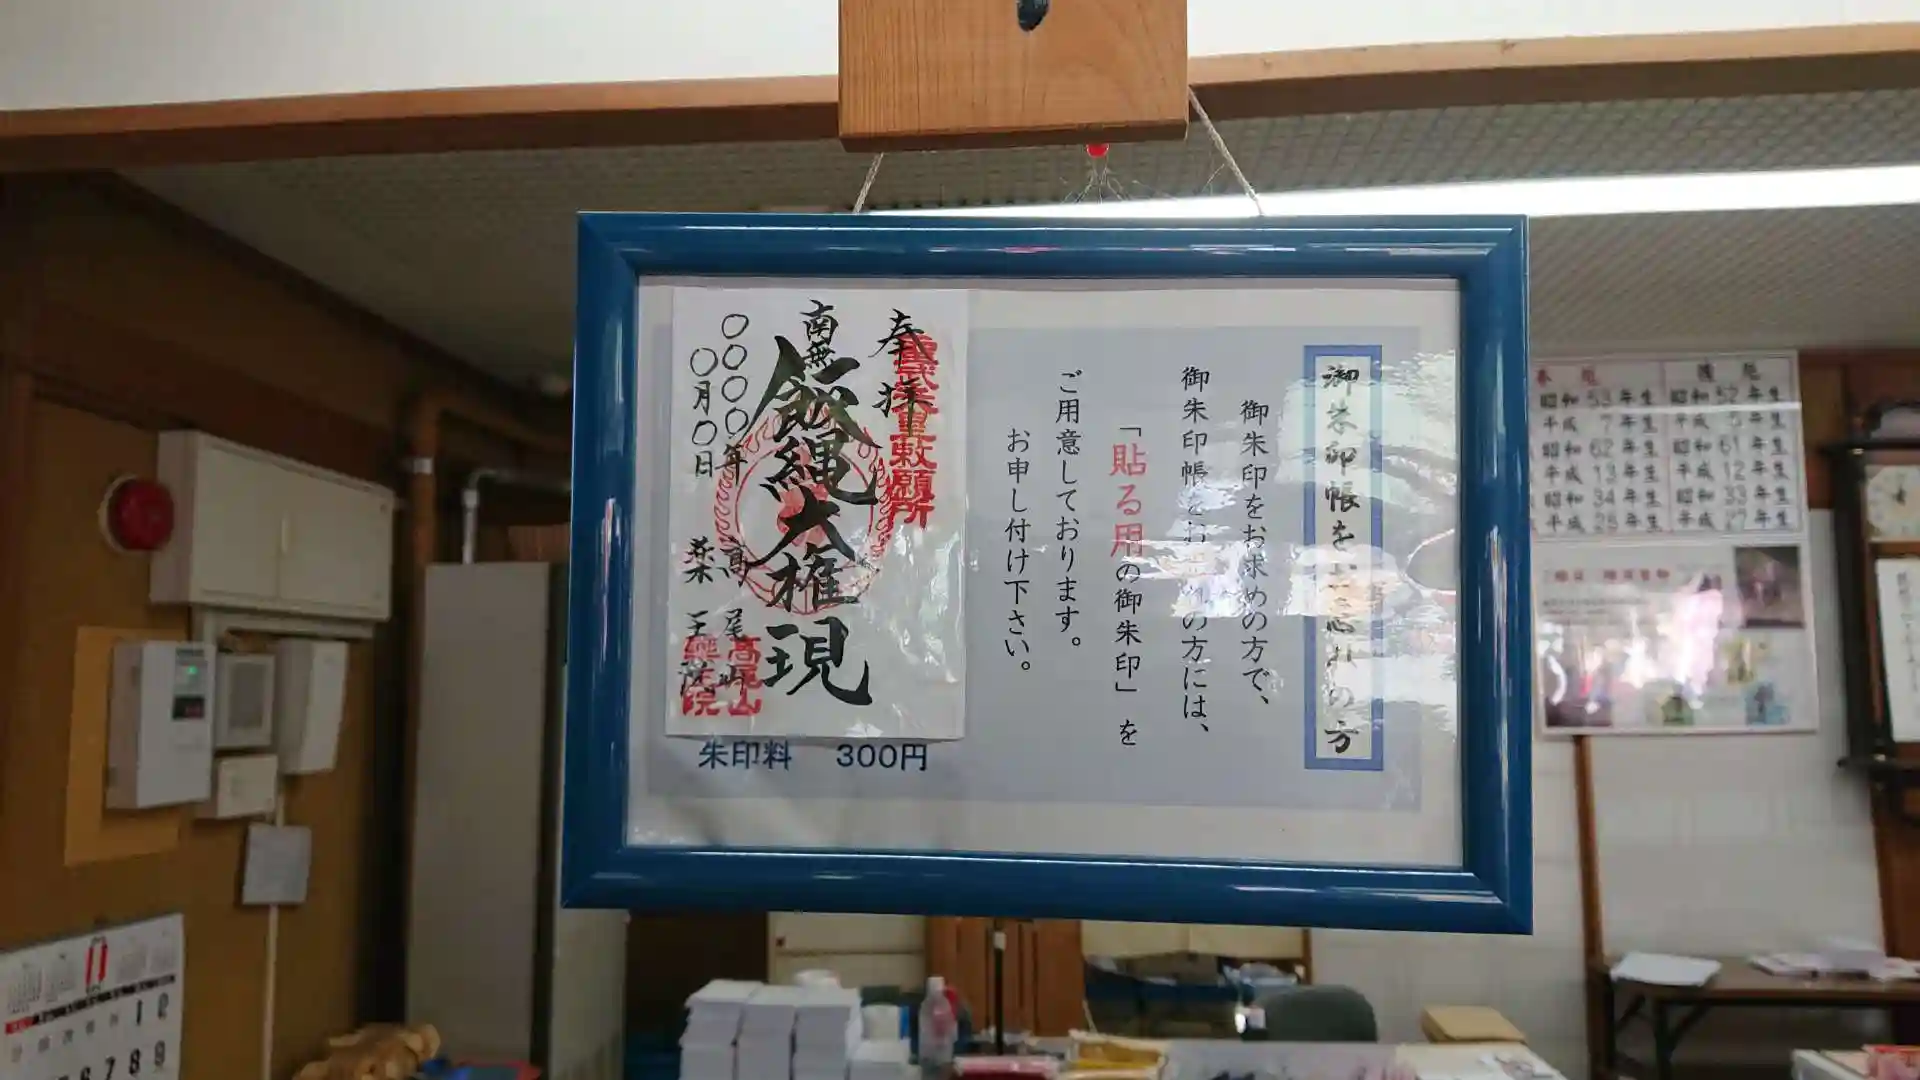 御朱印帳をお忘れの方
御朱印をお求めの方で、
御朱印帳をお忘れの方には、
「貼る用の御朱印」を
ご用意しております。
お申し付け下さい。
奉拝
南無
飯縄大権現
〇〇〇〇年
〇月〇日
高尾山
薬王院
高尾山
朱印料 300円
昭和53年生
昭和52年生
平成 7年生
平成 5年生
昭和62年生
昭和61年生
平成13年生
平成12年生
昭和34年生
昭和33年生
11
1 2
6 7 8 9